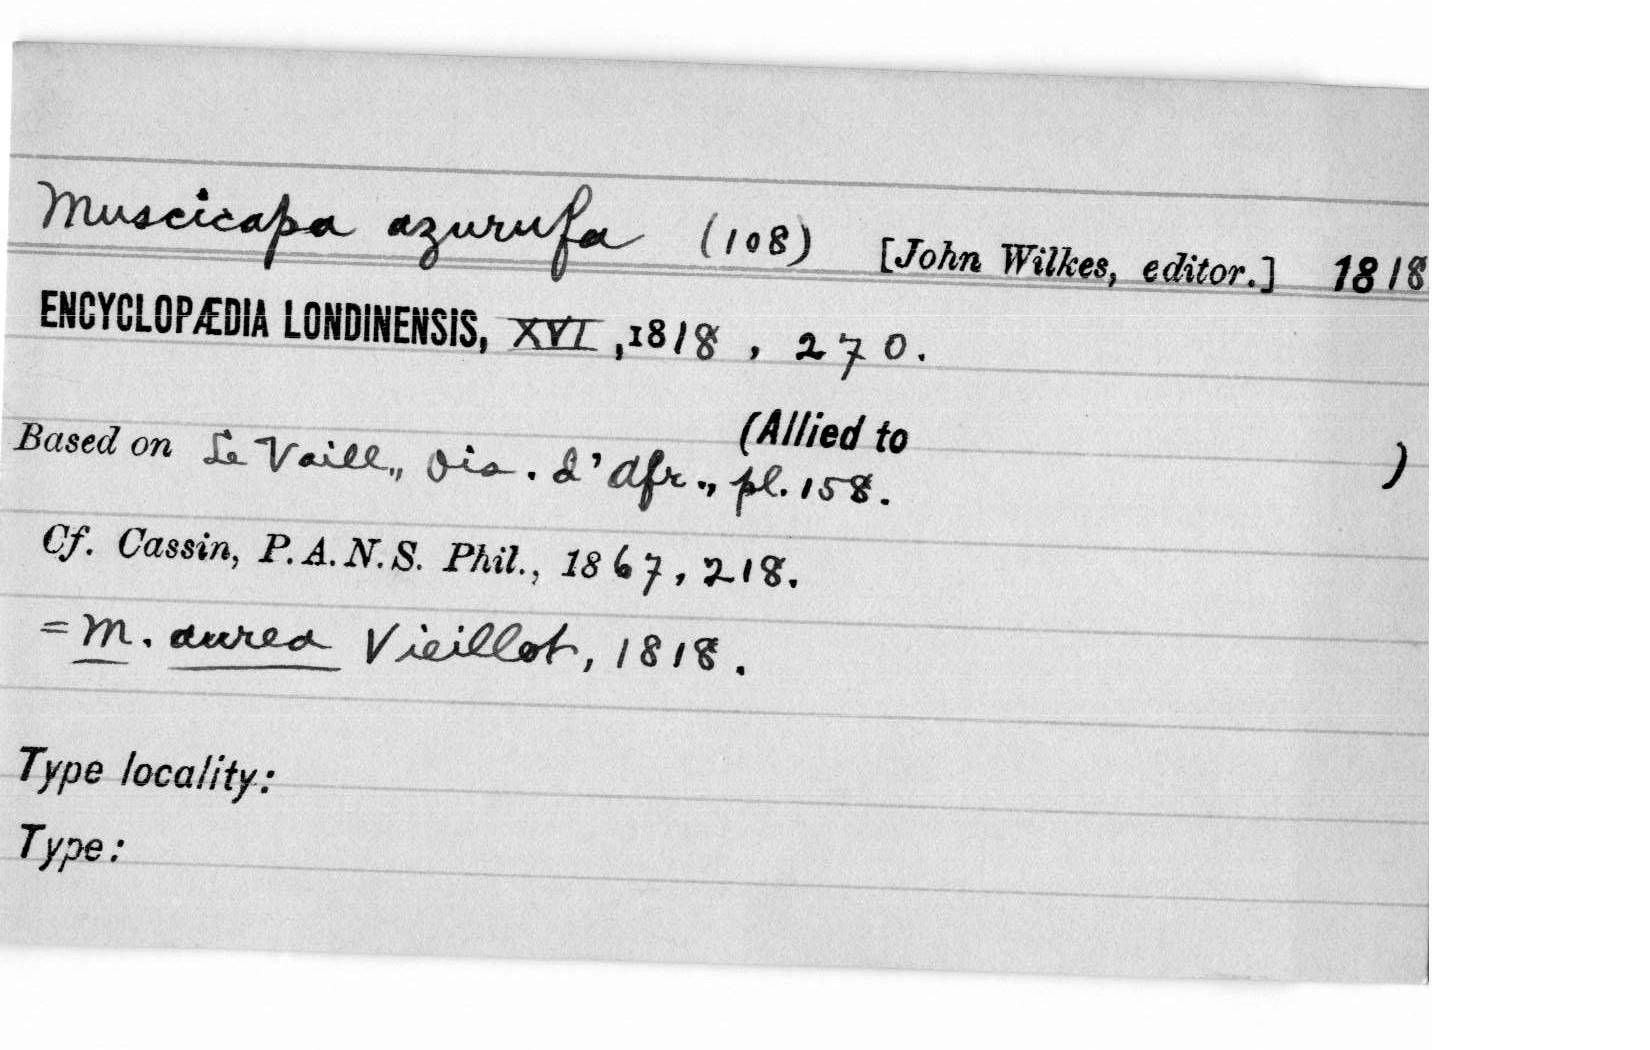 Muscicapa azurufa (108) [John Wilkes, editor.] 1818
ENCYCLOPÆDIA LONDINENSIS, XVI, 1818, 270.
(Allied to )
Based on Le Vaill., Ois. d'Afr., pl. 158.
Cf. Cassin, P. A. N. S. Phil., 1867, 218.
= M. aurea Vieillot, 1818.
Type locality:
Type: